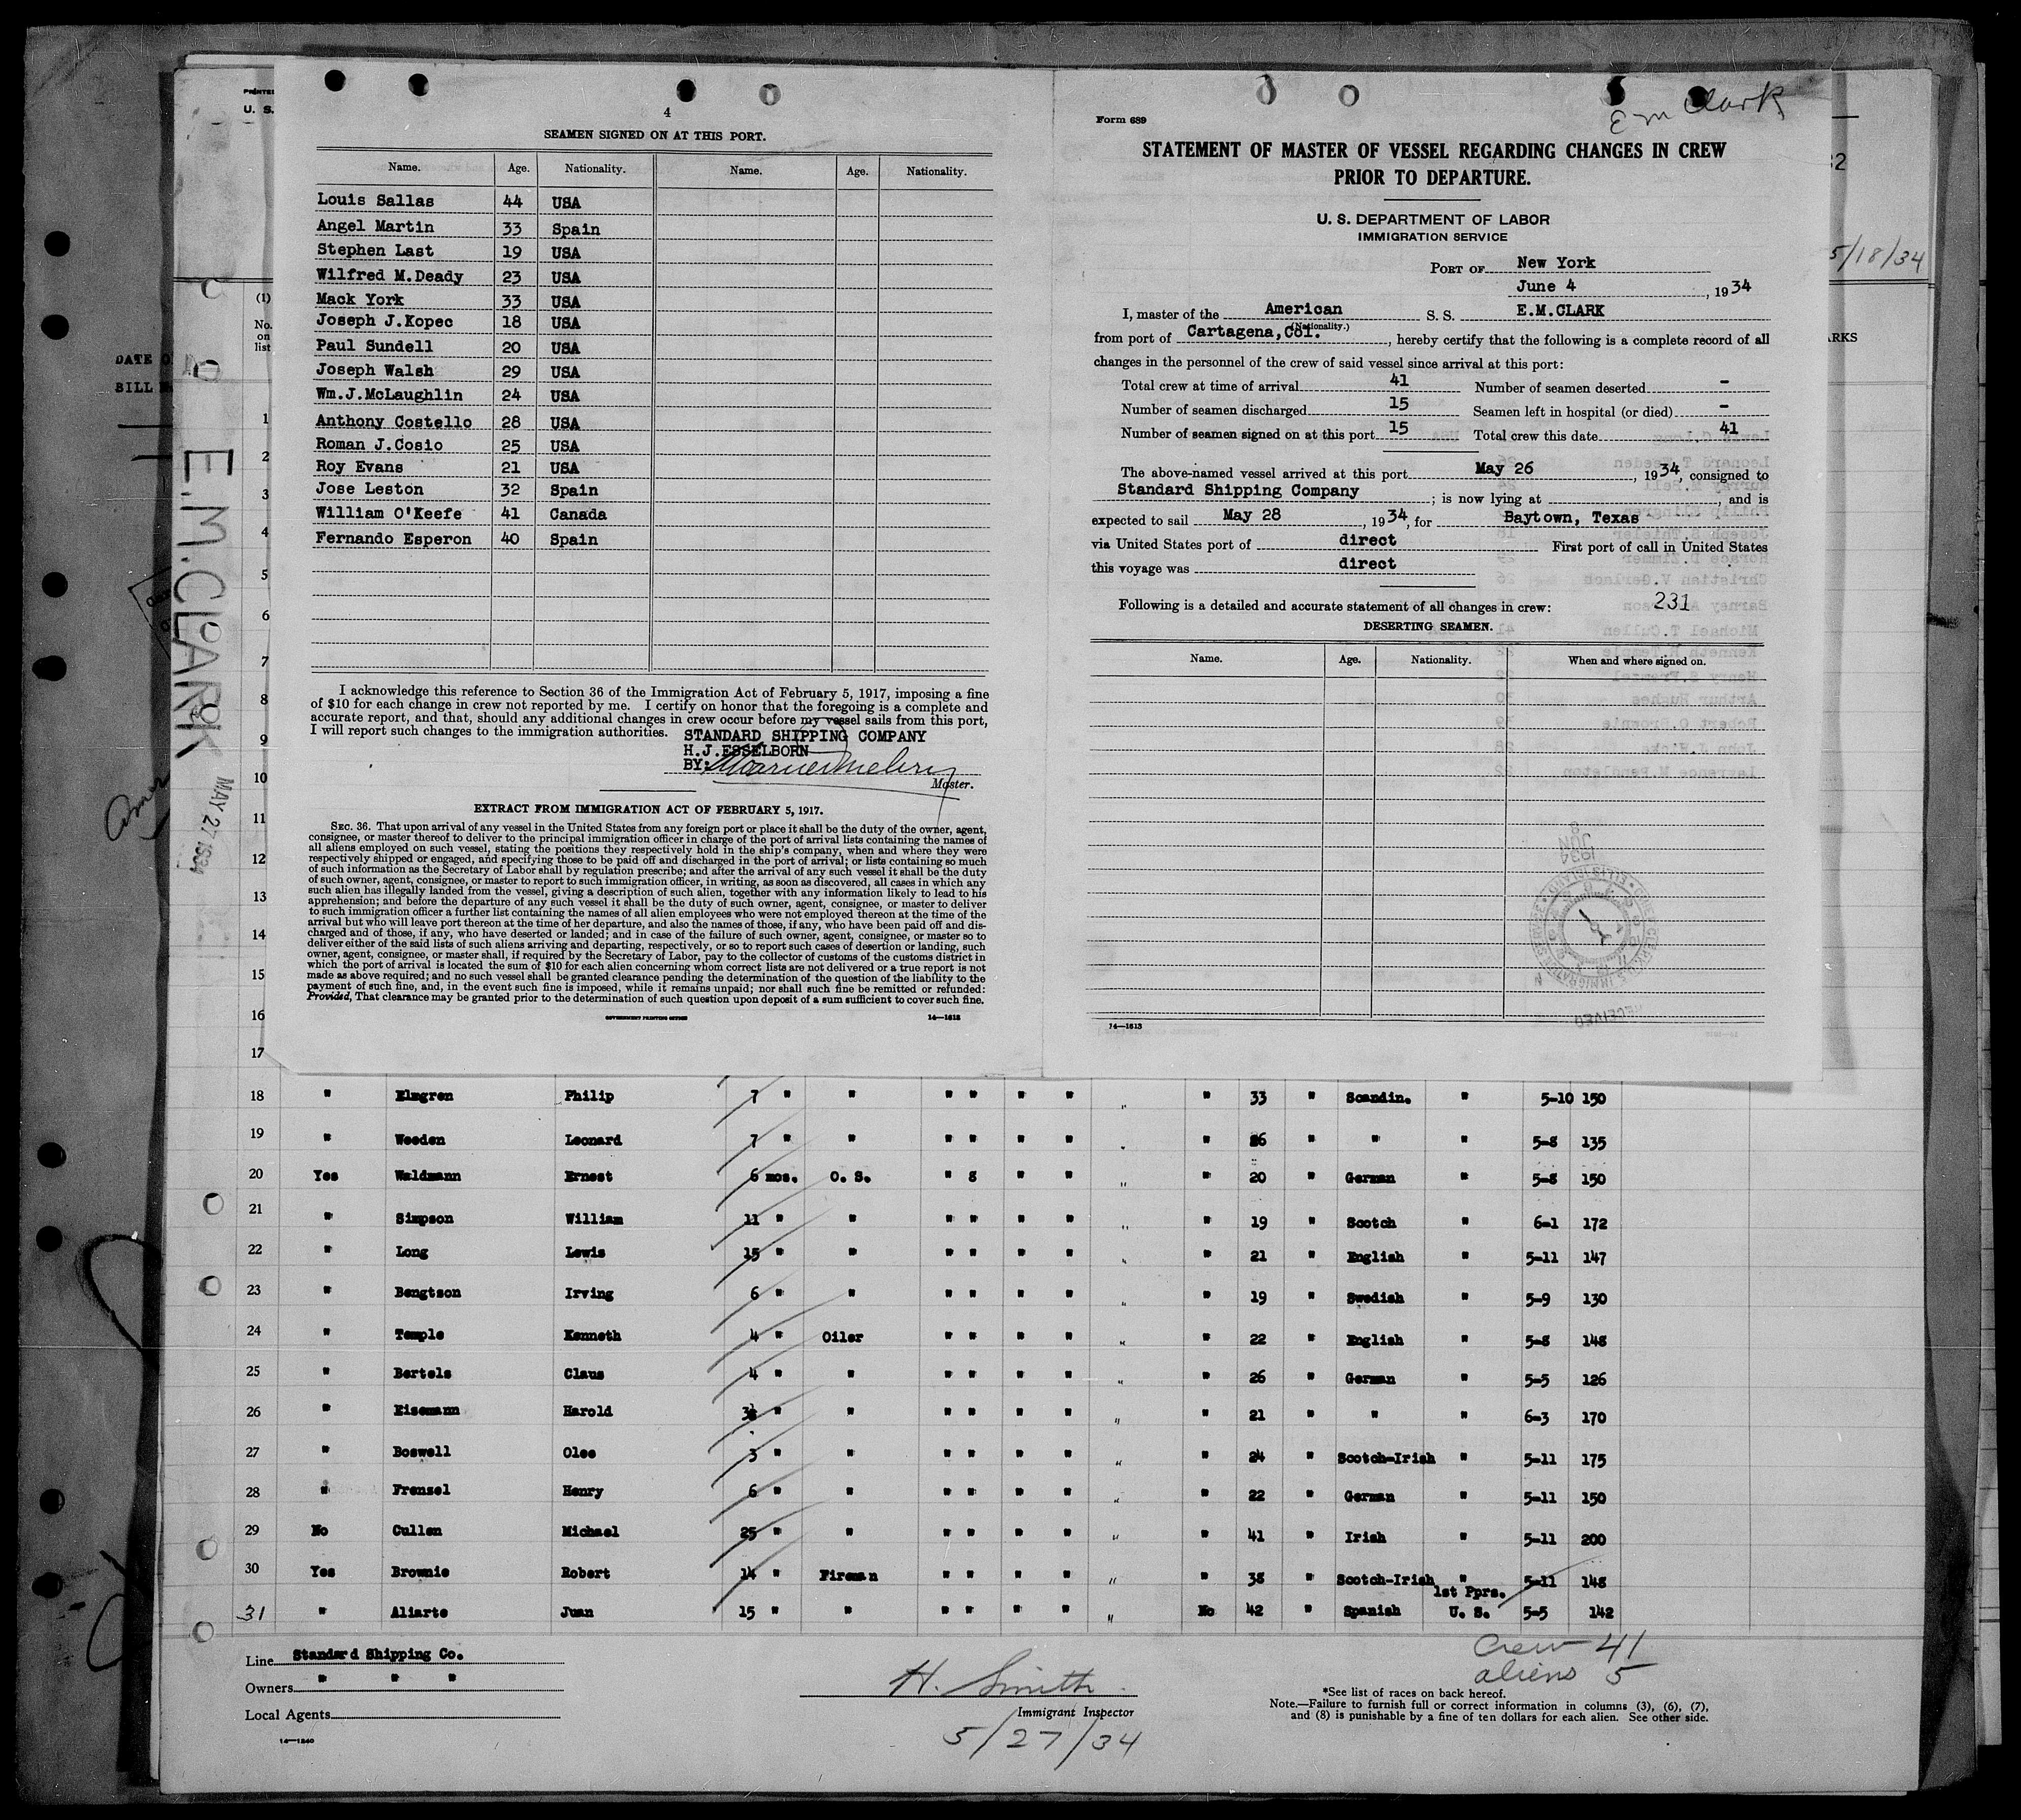 4
SEAMEN SIGNED ON AT THIS PORT.
Name. Age. Nationality. Name. Age. Nationality.
Louis Sallas 44 USA
Angel Martin 33 Spain
Stephen Last 19 USA
Wilfred M.Deady 23 USA
Mack York 33 USA
Joseph J.Kopec 18 USA
Paul Sundell 20 USA
Joseph Walsh 29 USA
Wm.J.McLaughlin 24 USA
Anthony Costello 28 USA
Roman J.Cosio 25 USA
Roy Evans 21 USA
Jose Leston 32 Spain
William O'Keefe 41 Canada
Fernando Esperon 40 Spain
I acknowledge this reference to Section 36 of the Immigration Act of February 5, 1917, imposing a fine
of $10 for each change in crew not reported by me. I certify on honor that the foregoing is a complete and
accurate report, and that, should any additional changes in crew occur before my vessel sails from this port,
I will report such changes to the immigration authorities.
STANDARD SHIPPING COMPANY
H.J.ESSELBORN
BY:
Master.
EXTRACT FROM IMMIGRATION ACT OF FEBRUARY 5, 1917.
SEC. 36. That upon arrival of any vessel in the United States from any foreign port or place it shall be the duty of the owner, agent,
consignee, or master thereof to deliver to the principal immigration officer in charge of the port of arrival lists containing the names of
all aliens employed on such vessel, stating the positions they respectively hold in the ship's company, when and where they were
respectively shipped or engaged, and specifying those to be paid off and discharged in the port of arrival; or lists containing so much
of such information as the Secretary of Labor shall by regulation prescribe; and after the arrival of any such vessel it shall be the duty
of such owner, agent, consignee, or master to report to such immigration officer, in writing, as soon as discovered, all cases in which any
such alien has illegally landed from the vessel, giving a description of such alien, together with any information likely to lead to his
apprehension; and before the departure of any such vessel it shall be the duty of such owner, agent, consignee, or master to deliver
to such immigration officer a further list containing the names of all alien employees who were not employed thereon at the time of the
arrival but who will leave port thereon at the time of her departure, and also the names of those, if any, who have been paid off and dis-
charged and of those, if any, who have deserted or landed; and in case of the failure of such owner, agent, consignee, or master so to
deliver either of the said lists of such aliens arriving and departing, respectively, or so to report such cases of desertion or landing, such
owner, agent, consignee, or master shall, if required by the Secretary of Labor, pay to the collector of customs of the customs district in
which the port of arrival is located the sum of $10 for each alien concerning whom correct lists are not delivered or a true report is not
made as above required; and no such vessel shall be granted clearance pending the determination of the question of the liability to the
payment of such fine, and, in the event such fine is imposed, while it remains unpaid; nor shall such fine be remitted or refunded:
Provided, That clearance may be granted prior to the determination of such question upon deposit of a sum sufficient to cover such fine.
GOVERNMENT PRINTING OFFICE 14—1613
E M Clark
Form 689
STATEMENT OF MASTER OF VESSEL REGARDING CHANGES IN CREW
PRIOR TO DEPARTURE.
U. S. DEPARTMENT OF LABOR
IMMIGRATION SERVICE
PORT OF New York
June 4, 1934
I, master of the American S. S. E.M.CLARK
(Nationality.)
from port of Cartagena, Col., hereby certify that the following is a complete record of all
changes in the personnel of the crew of said vessel since arrival at this port:
Total crew at time of arrival 41 Number of seamen deserted -
Number of seamen discharged 15 Seamen left in hospital (or died) -
Number of seamen signed on at this port 15 Total crew this date 41
The above-named vessel arrived at this port May 26, 1934, consigned to
Standard Shipping Company; is now lying at , and is
expected to sail May 28, 1934, for Baytown, Texas
via United States port of direct First port of call in United States
this voyage was direct
Following is a detailed and accurate statement of all changes in crew: 231
DESERTING SEAMEN.
Name. Age. Nationality. When and where signed on.
14—1613
PRINTED
U. S.
32
5/18/34
ARKS
DATE O
BILL
(1)
No. on list
E.M.CLARK
MAY 27 1934
1
2
3
4
5
6
7
8
9
10
11
12
13
14
15
16
17
18 " Elmgren Philip 7 " " " " " " " " 33 " Scandin. " 5-10 150
19 " Weeden Leonard 7 " " " " " " " " 26 " " " 5-8 135
20 Yes Waldmann Ernest 6 mos. O. S. " s " " " " 20 " German " 5-8 150
21 " Simpson William 11 " " " " " " " " 19 " Scotch " 6-1 172
22 " Long Lewis 15 " " " " " " " " 21 " English " 5-11 147
23 " Bengtson Irving 6 " " " " " " " " 19 " Swedish " 5-9 130
24 " Temple Kenneth 4 " Oiler " " " " " " 22 " English " 5-8 148
25 " Bertels Claus 4 " " " " " " " " 26 " German " 5-5 126
26 " Eisemann Harold " " " " " " " " 21 " " " 6-3 170
27 " Boswell Olee 3 " " " " " " " " 24 " Scotch-Irish " 5-11 175
28 " Frensel Henry 6 " " " " " " " " 22 " German " 5-11 150
29 No Cullen Michael 25 " " " " " " " " 41 " Irish " 5-11 200
30 Yes Brownie Robert 14 " Fireman " " " " " " 38 " Scotch-Irish " 5-11 148
31 " Aliarte Juan 15 " " " " " " " No 42 " Spanish 1st Pprs. U. S. 5-5 142
Line Standard Shipping Co.
Owners " " "
Local Agents
14—1240
H. Smith
Immigrant Inspector
5/27/34
Crew 41
aliens 5
*See list of races on back hereof.
Note.—Failure to furnish full or correct information in columns (3), (6), (7),
and (8) is punishable by a fine of ten dollars for each alien. See other side.